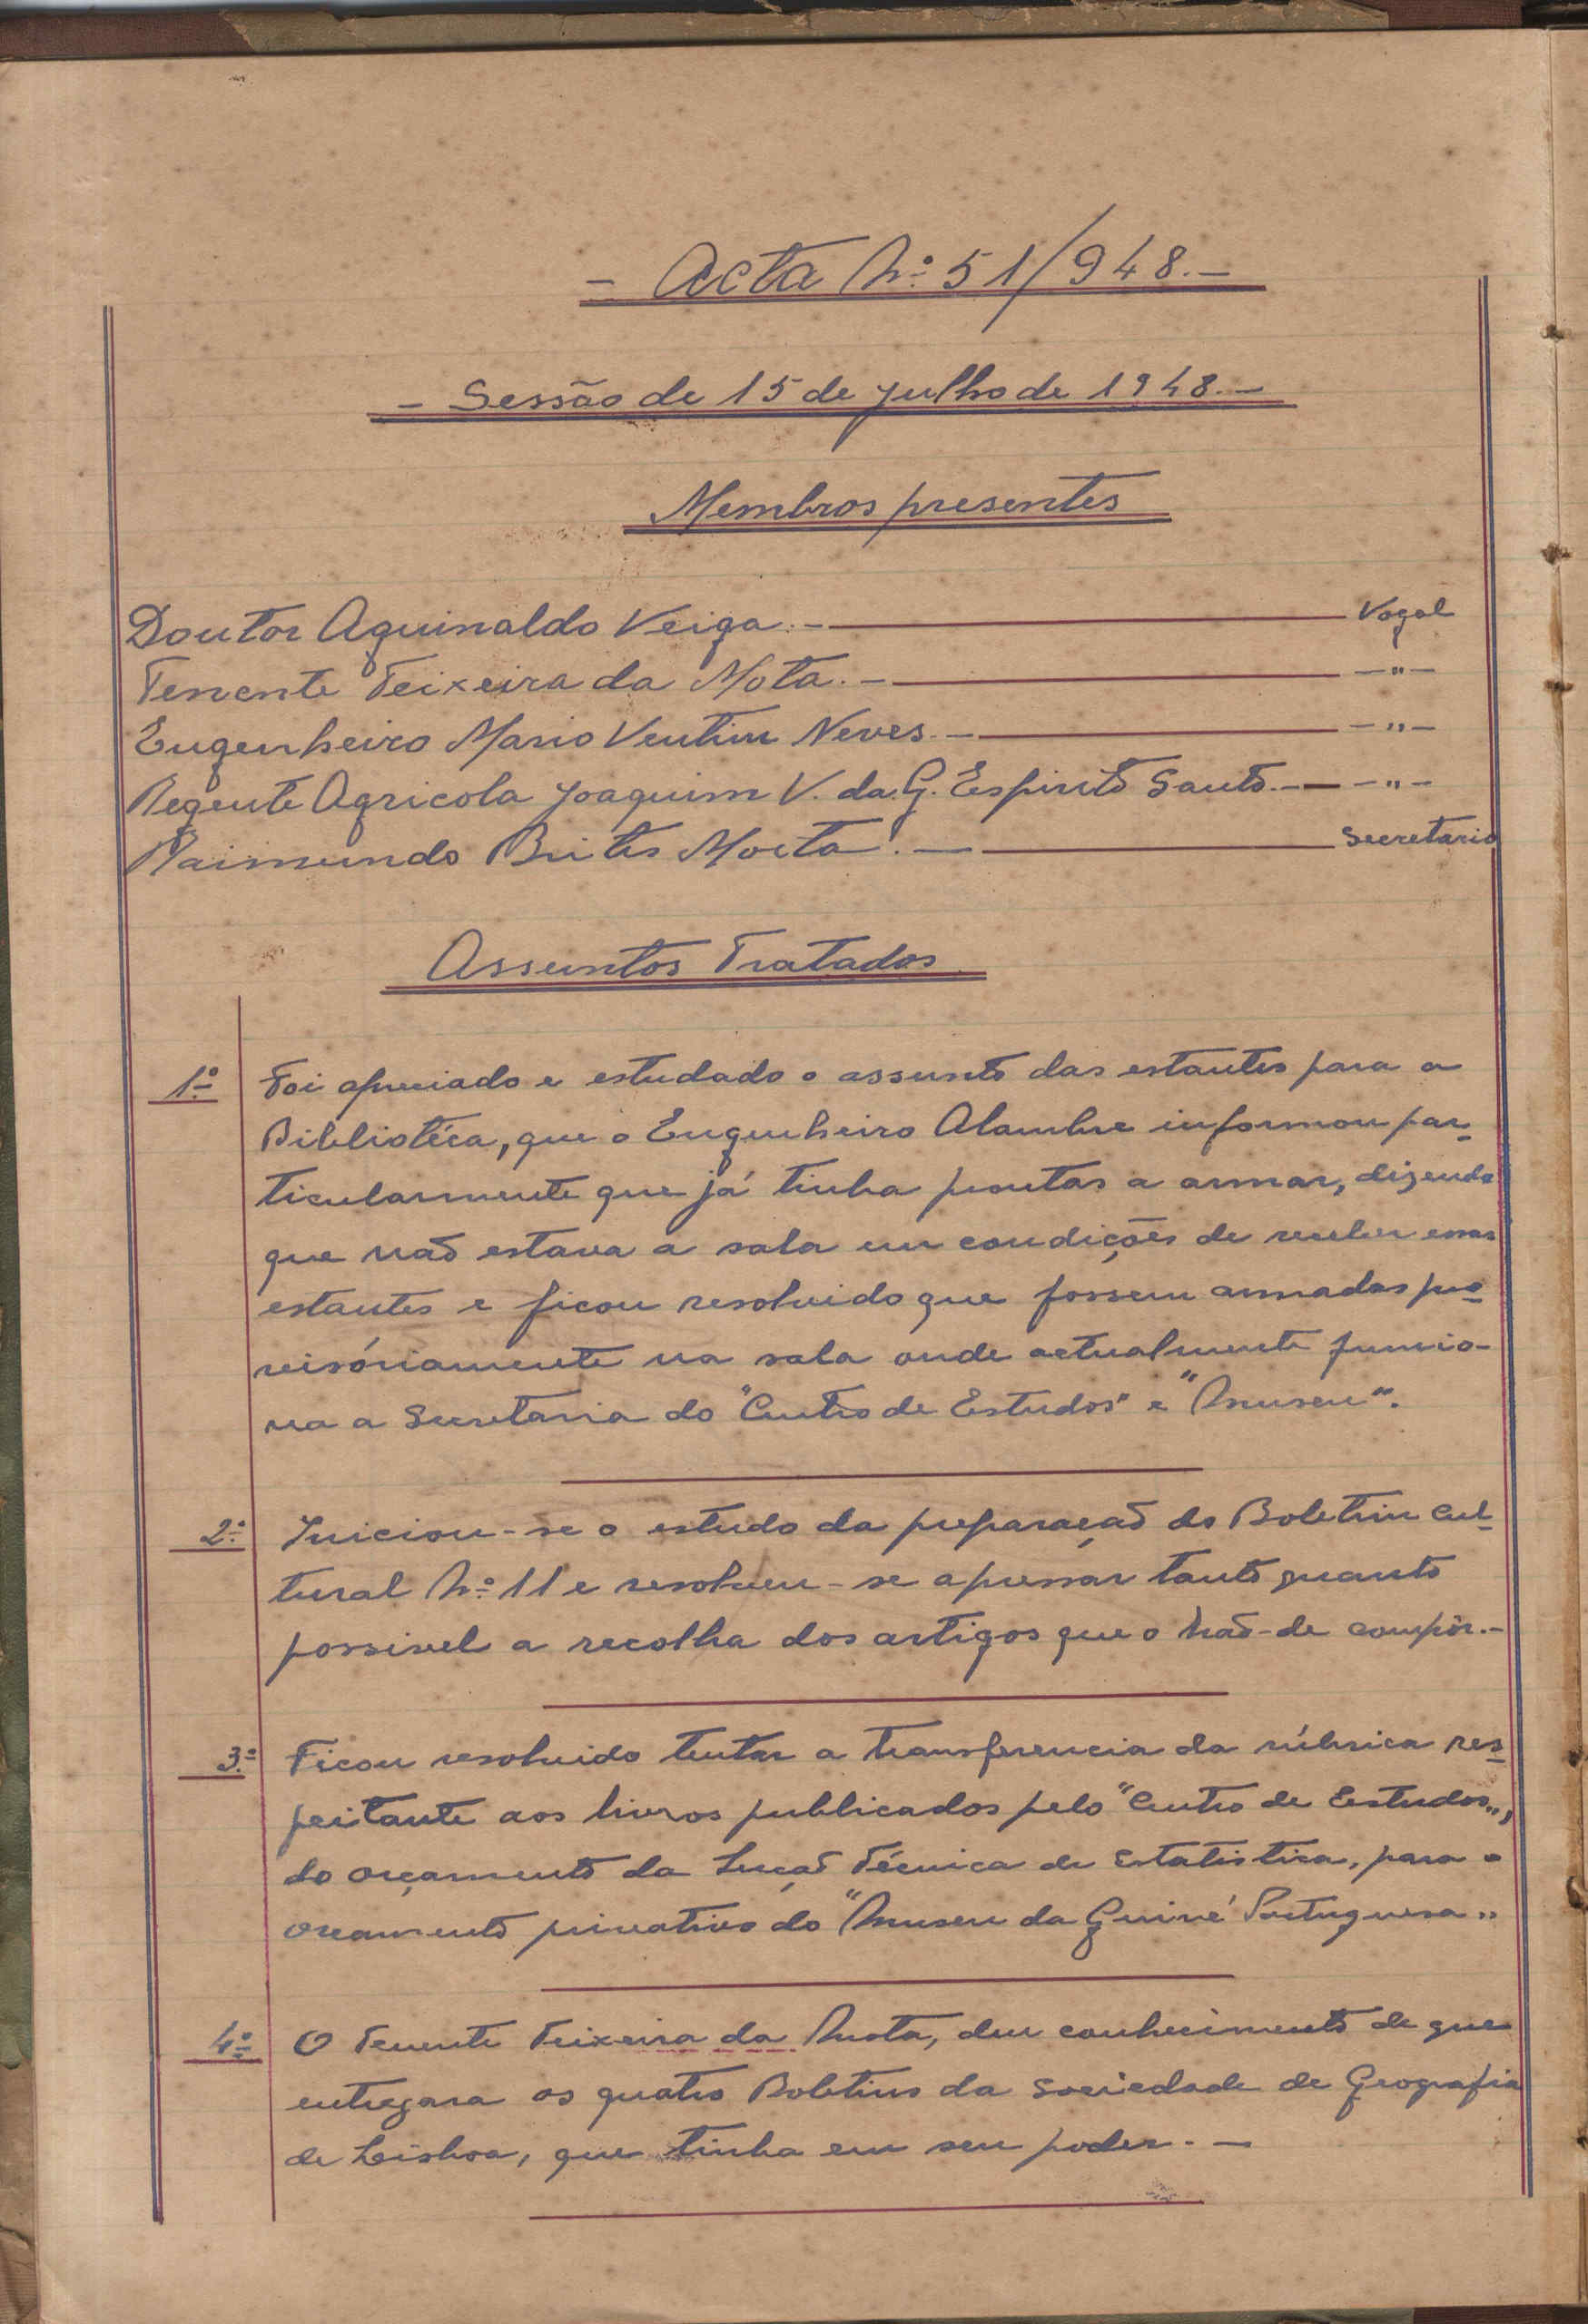 - Acta Nº 51/948.-
- Sessão de 15 de Julho de 1948.-
Membros presentes
Doutor Aguinaldo Veiga.- Vogal
Tenente Teixeira da Mota.- -"-
Engenheiro Mario Ventim Neves.- -"-
Regente Agricola Joaquim V. da G. Espirito Santo.- -"-
Raimundo Brites Moita.- Secretario
Assuntos Tratados
1º Foi apreciado e estudado o assunto das estantes para a
Bibliotéca, que o Engenheiro Alambre informou par-
ticularmente que já tinha prontas a armar, dizendo
que não estava a sala em condições de receber essas
estantes e ficou resolvido que fossem armadas pro-
visóriamente na sala onde actualmente funcio-
na a Secretaria do "Centro de Estudos" e "Museu".
2º Iniciou-se o estudo da preparação do Boletim Cul-
tural Nº 11 e resolveu-se apressar tanto quanto
possivel a recolha dos artigos que o hão-de compôr.-
3º Ficou resolvido tentar a transferencia da rúbrica res-
peitante aos livros publicados pelo "Centro de Estudos",
do orçamento da Secção Técnica de Estatistica, para o
orcamento privativo do "Museu da Guiné Portuguesa"
4º O Tenente Teixeira da Mota, deu conhecimento de que
entregara os quatro Boletins da Sociedade de Geografia
de Lisboa, que tinha em seu poder.-